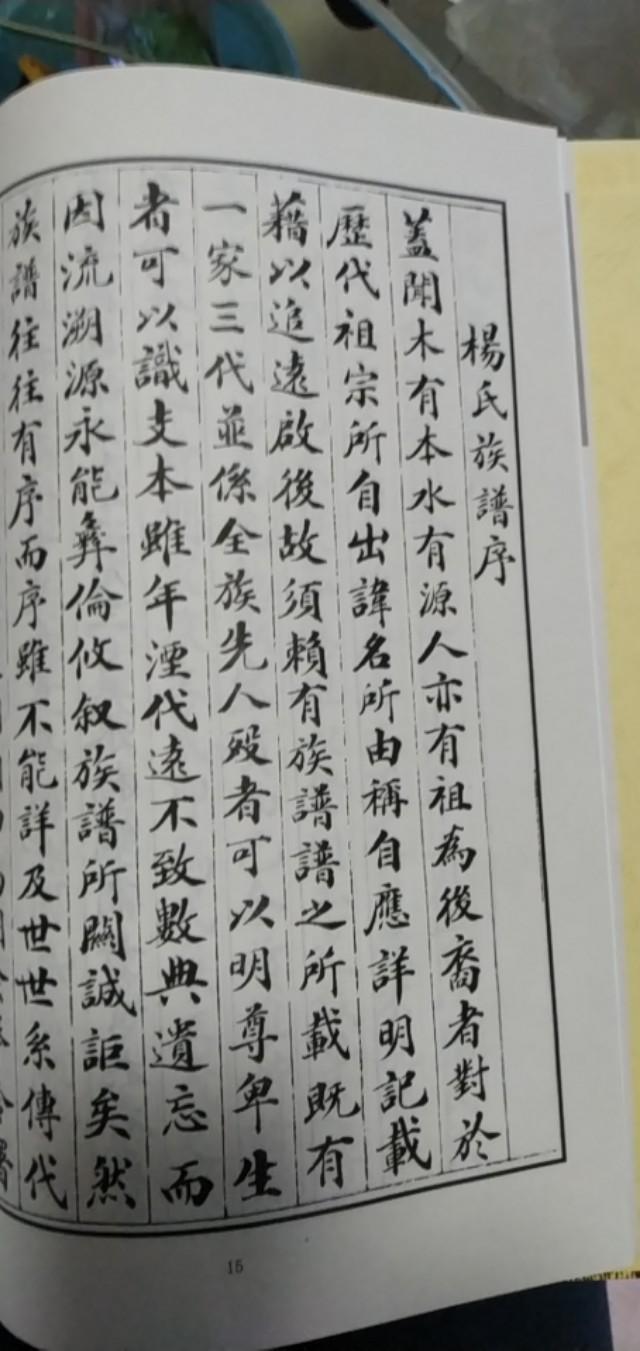 楊氏族譜序
蓋聞木有本水有源人亦有祖為後裔者對於
歷代祖宗所自出諱名所由稱自應詳明記載
藉以追遠啟後故須賴有族譜譜之所載既有
一家三代並係全族先人歿者可以明尊卑生
者可以識支本雖年湮代遠不致數典遺忘而
因流溯源永能彝倫攸叙族譜所關誠詎矣然
族譜往往有序而序雖不能詳及世世系傳代
15